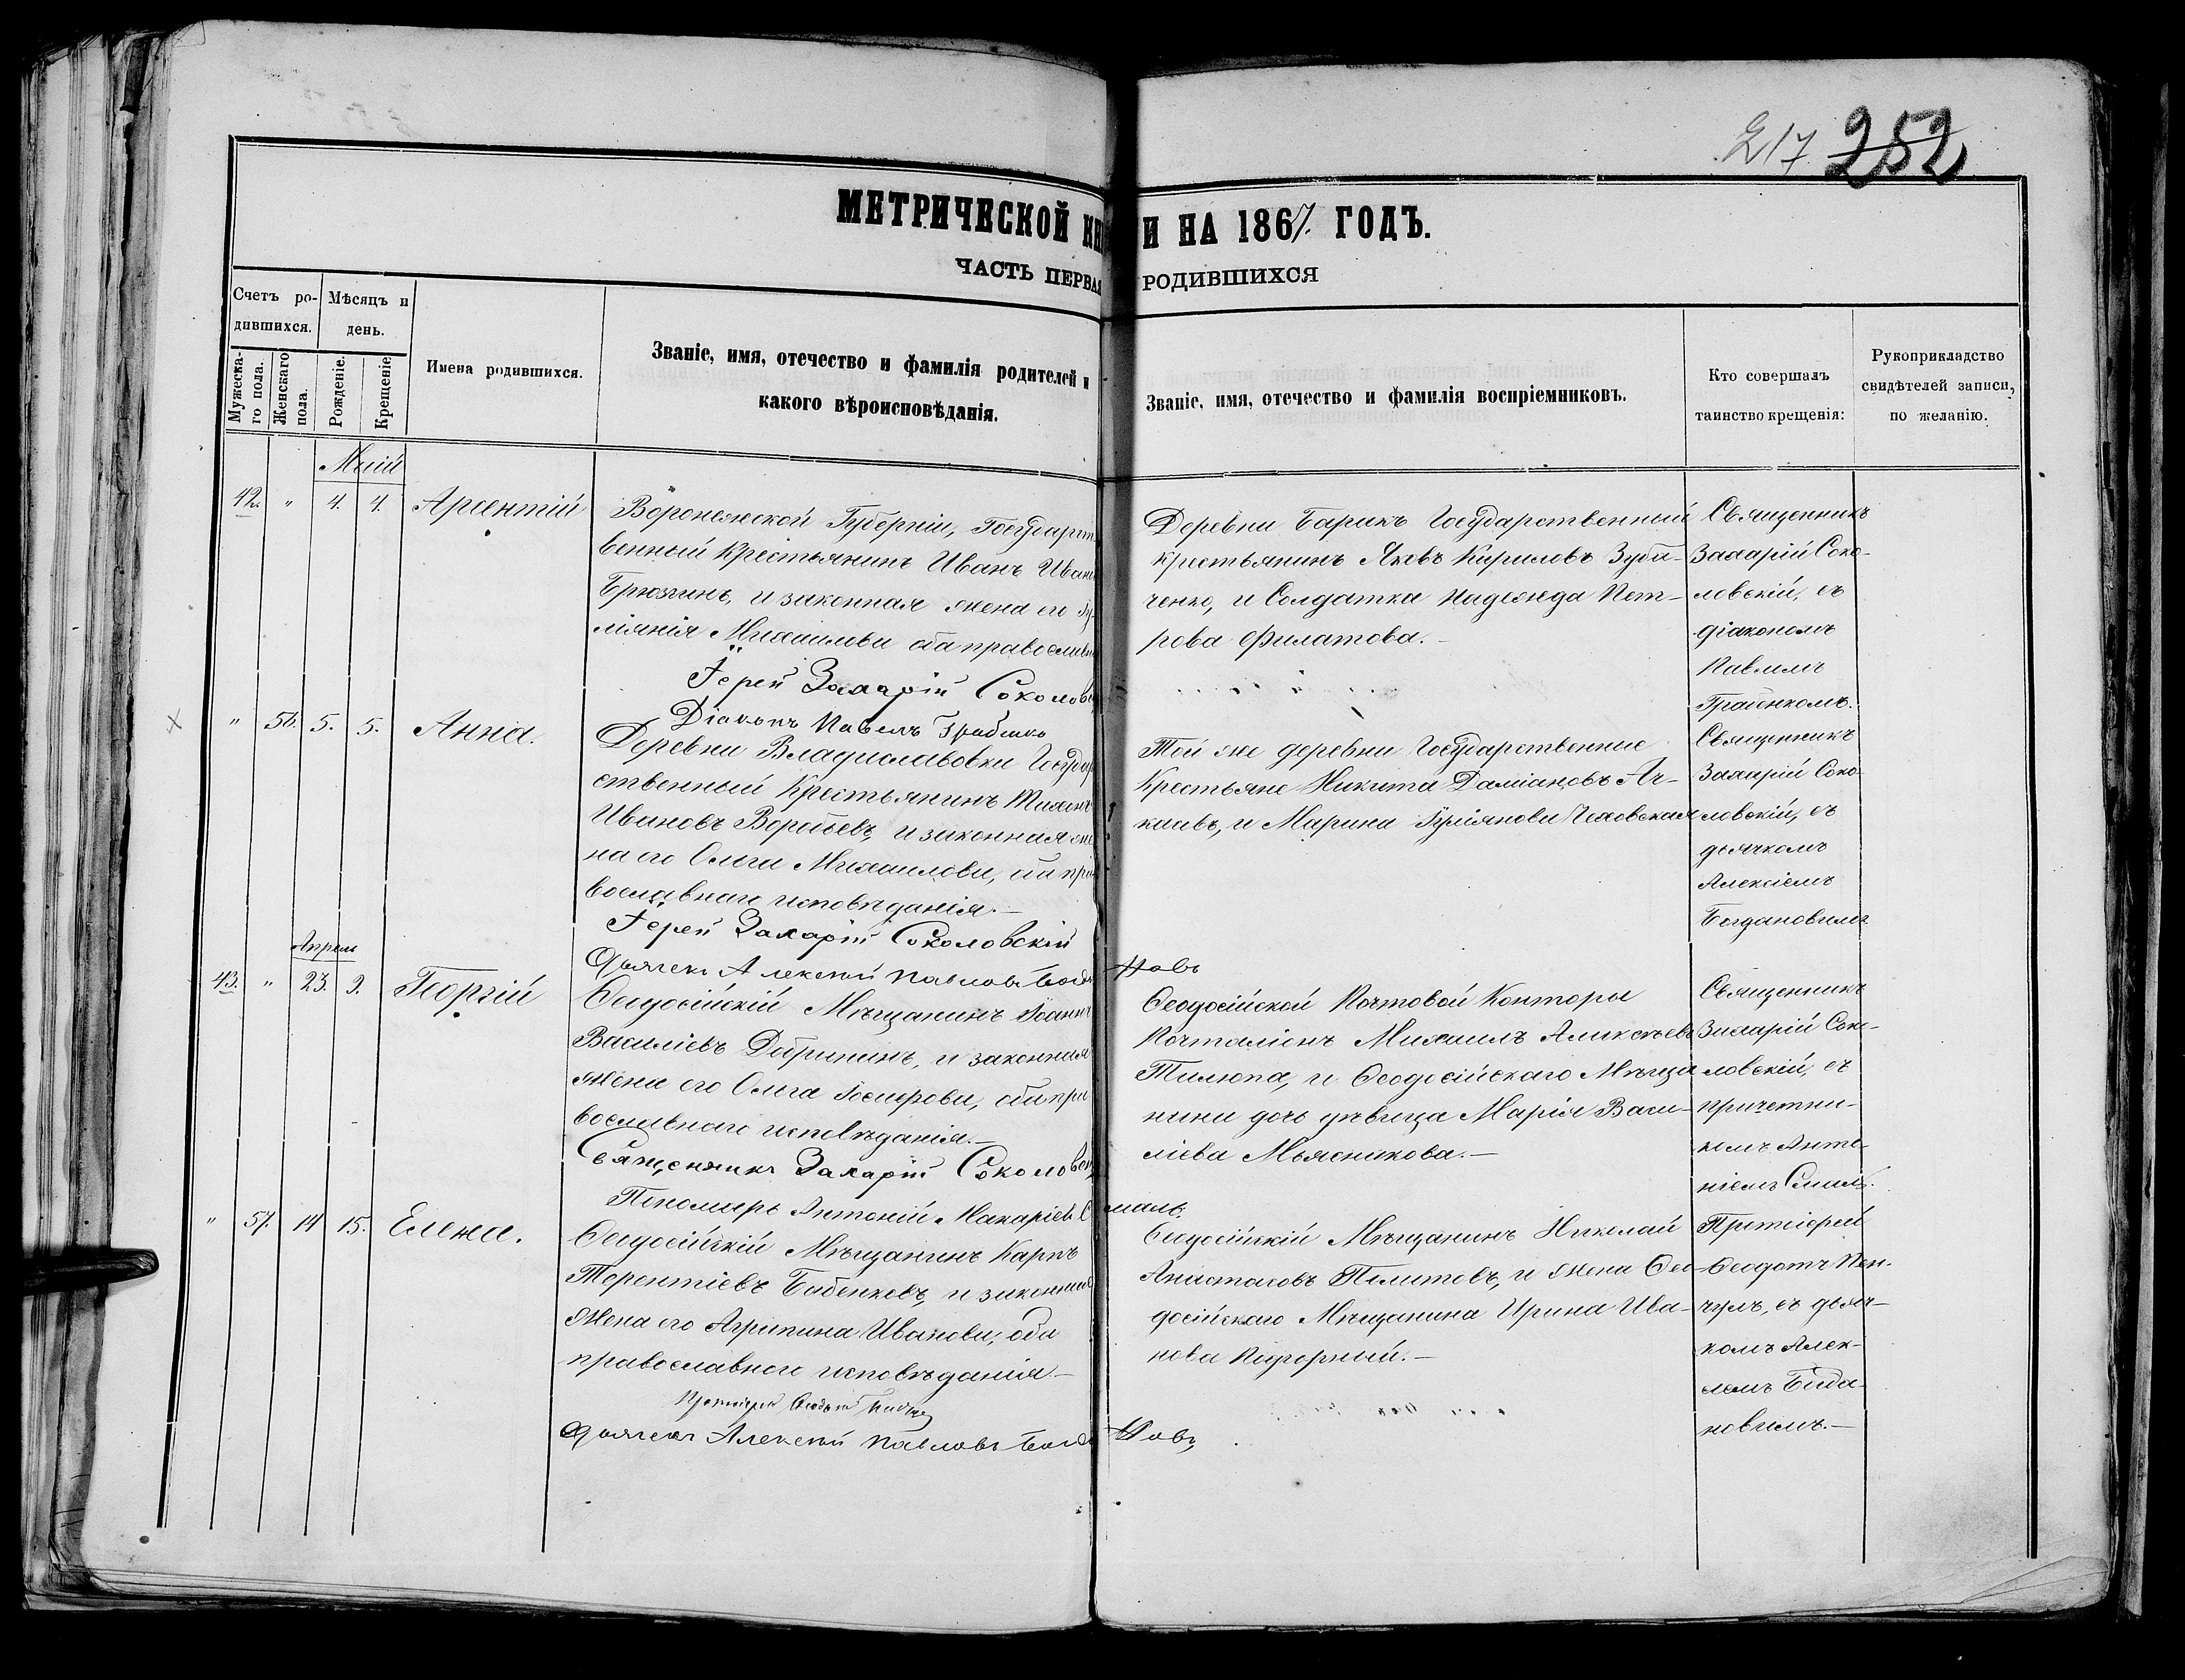 217. 252
МЕТРИЧЕСКОЙ КНИ И НА 1867. ГОДЪ.
ЧАСТЬ ПЕРВАЯ РОДИВШИХСЯ
Счетъ родившихся.
Мѣсяцъ и день.
Мужескаго пола.
Женскаго пола.
Рожденіе.
Крещеніе.
Имена родившихся.
Званіе, имя, отечество и фамилія родителей и
какого вѣроисповѣданія.
Званіе, имя, отечество и фамилія воспріемниковъ.
Кто совершалъ
таинство крещенія:
Рукоприкладство
свидѣтелей записи,
по желанію.
Маій
42. " 4. 4. Арсентій
Воронежской Губерніи, Государст
венный Крестьянинъ Иванъ Иван
и законная жена его
Михаилова оба православн
Іерей Захарій Соколовс
Діаконъ Павелъ Грабенко
Деревни Барикъ Государственный
крестьянинъ Яковъ Кириловъ Зуба-
ченко, и Солдатка Надежда Пет-
рова Филатова.-
Священникъ
Захарій Соко-
ловскій, съ
діакономъ
Павломъ
Грабенкомъ.
" 56. 5. 5. Анна.
Деревни Владиславовки Государ
ственный Крестьянинъ
Ивановъ Воробьевъ, и законная же
на его Ольга Михаилова, оба пра
вославнаго исповѣданія.-
Іерей Захарій Соколовскій
Дьячекъ Алексѣй Павловъ Богда новъ
Той же деревни Государственные
Крестьяне Никита Даміановъ Ач-
касовъ, и Марина Чеховская
Священникъ
Захарій Соко-
ловскій, съ
дьячкомъ
Алексіемъ
Богдановымъ
Апрель
43. " 23. 9. Георгій
Ѳеодосійскій Мѣщанинъ Іоаннъ
Василіевъ Добринин, и законная
жена его Ольга Іосифова, оба пра
вославнаго исповѣданія.-
Священникъ Захарій Соколовск
Пономарь Антоній Макаріевъ С маль.
Ѳеодосійской Почтовой Конторы
Почталіонъ Михаилъ Алексѣевъ
и Ѳеодосійскаго Мѣща
нина дочь дѣвица Марія Васи-
ліева Мьясникова.-
Священникъ
Захарій Соко-
ловскій, съ
причетни-
комъ Анто-
ніемъ Смаль.
" 57. 14 15. Елена.
Ѳеодосійскій Мѣщанинъ Карпъ
Терентіевъ Бабенковъ, и законная
жена его Агрипина Иванова, оба
православного исповѣданія-
Протоіерей Ѳеодотъ
Дьячекъ Алексѣй Павловъ Богда новъ
Ѳеодосійскій Мѣщанинъ Николай
Анастасовъ и жена Ѳео-
досійскаго Мѣщанина Ирина Ива-
нова
Протоіерей
Ѳеодотъ
съ дьяч-
комъ Алек-
Богда-
новымъ.-